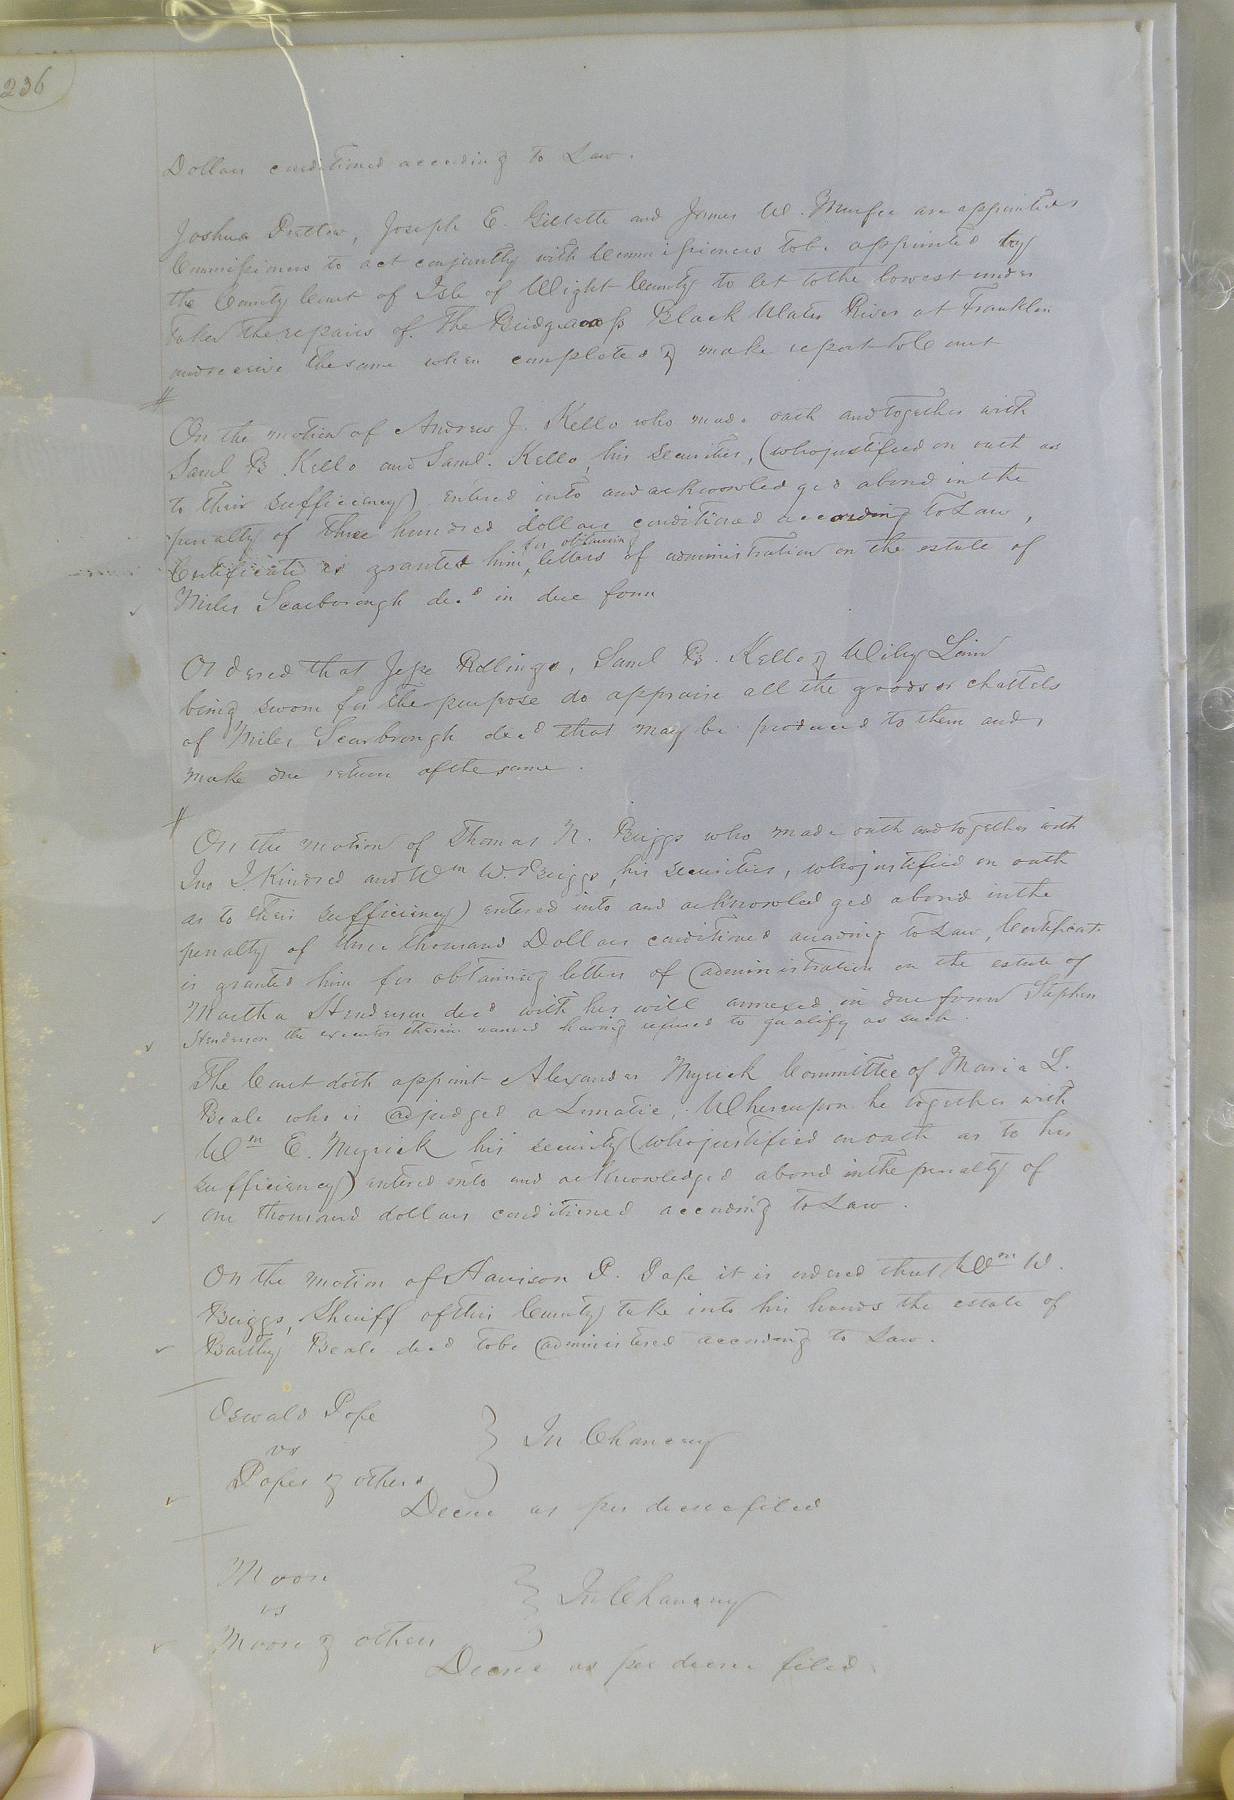 236
Dollars conditioned according to Law.
Joshua Pretlow, Joseph E. Gillette and James W. Murfee are appointed
Commissioners to act conjointly with Commissioners to be appointed by
the County Court of Isle of Wight County to let to the lowest under
taker the repairs of the Bridge across Black Water River at Franklin
and receive the same when completed & make report to Court
#
On the motion of Andrew J. Kello who made oath and together with
Saml B Kello and Saml. Kello, his securities, (who justified on oath as
to their sufficiency) entered into and acknowledged a bond in the
penalty of three hundred dollars conditioned according to Law,
Certificate is granted him for obtaining letters of administration on the estate of
Miles Scarborough decd in due form
Ordered that Jesse Rollings, Saml B. Kello & Wiley
being sworn for the purpose do appraise all the goods & chattels
of Miles Scarbrough decd that may be produced to them and
make due return of the same.
#
On the motion of Thomas N. Briggs who made oath and together with
Jno J. Kindred and Wm W. Briggs, his securities, who justified on oath
as to their sufficiency) entered into and acknowledged a bond in the
penalty of three thousand Dollars conditioned according to Law, Certificate
is granted him for obtaining letters of administration on the estate of
Martha Henderson decd with her will annexed in due form Stephen
Henderson the executor therein named having refused to qualify as such.
The Court doth appoint Alexander Myrick Committee of Maria L.
Beale who is adjudged a Lunatic, Whereupon he together with
Wm E. Myrick his security (who justified on oath as to his
sufficiency) entered into and acknowledged a bond in the penalty of
one thousand dollars conditioned according to Law.
On the motion of Harrison P. Pope it is ordered that Wm W.
Briggs, Sheriff of this County take into his hands the estate of
Barthy Beale decd to be administered according to Law.
Oswald Pope
vs
Popes & others
In Chancery
Decree as per decree filed
Moore
vs
Moore & others
In Chancery
Decree as per decree filed.